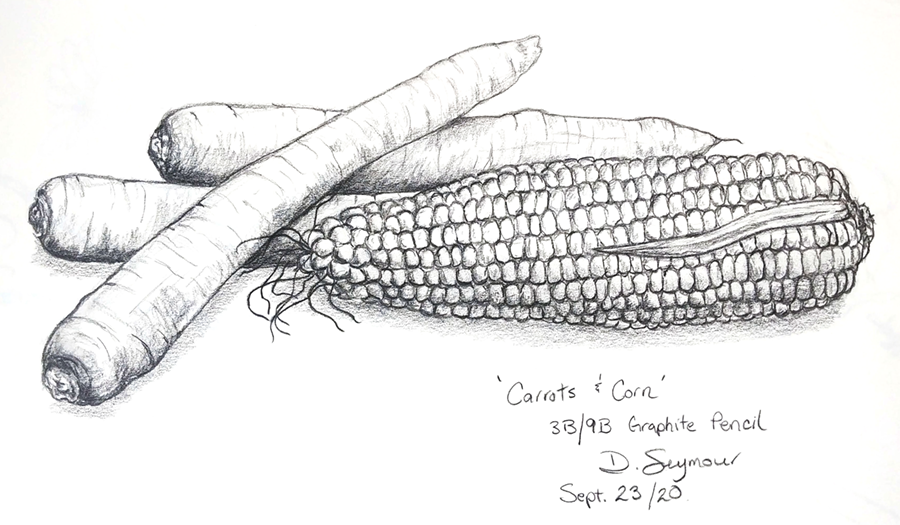 'Carrots & Corn'
3B/9B Graphite Pencil
D. Seymour
Sept. 23/20